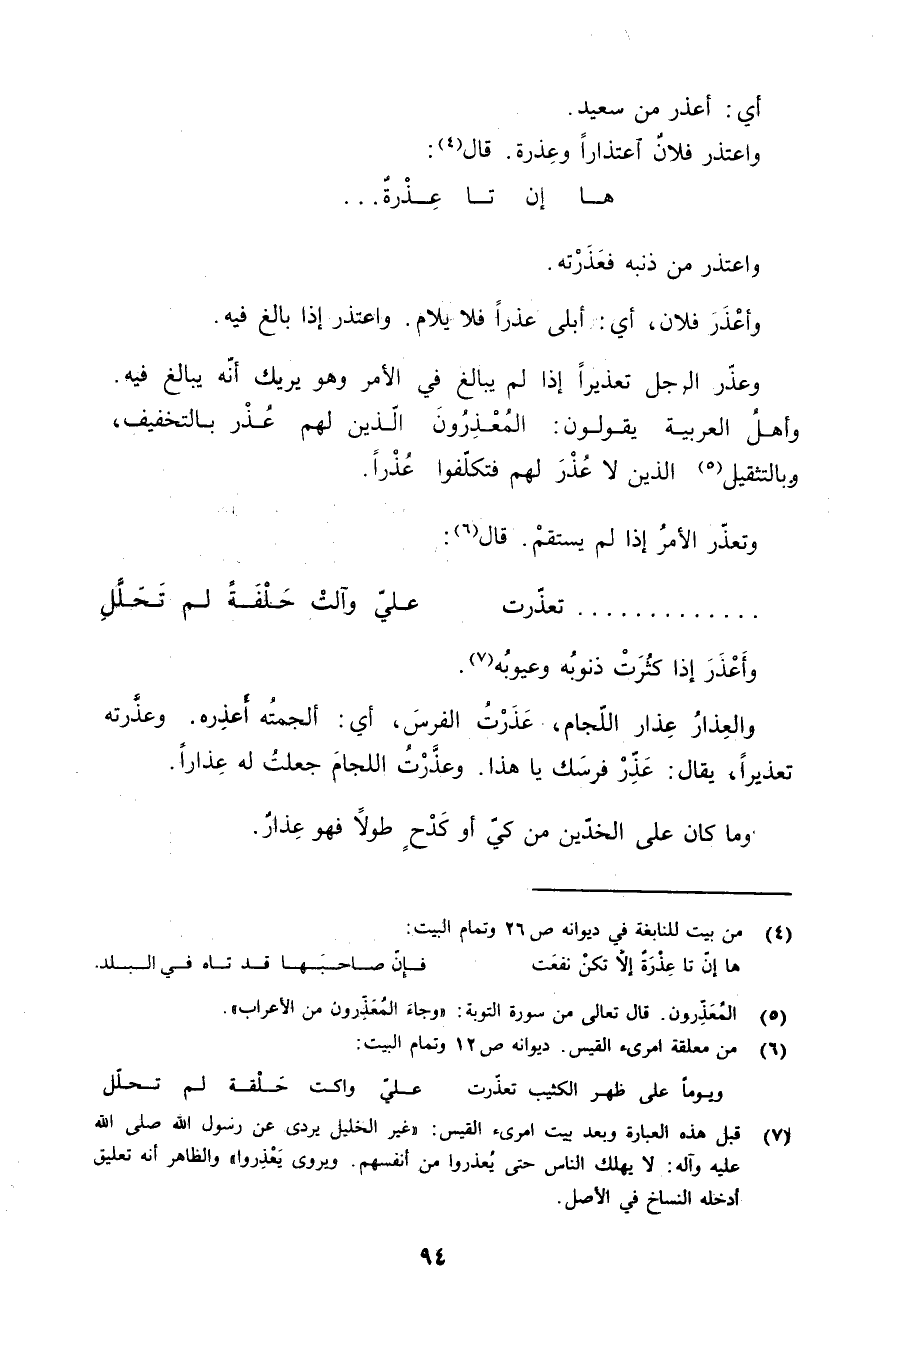 أي: أعذر من سعيد.
واعتذر فلانٌ ٱعتذاراً وعِذرة. قال(٤):
هـــا إن تـــا عِـــذْرةٌ...
واعتذر من ذنبه فعَذَرْته.
وأعْذَرَ فلان، أي: أبلى عذراً فلا يلام. واعتذر إذا بالغ فيه.
وعذّر الرجل تعذيراً إذا لم يبالغ في الأمر وهو يريك أنّه يبالغ فيه.
وأهلُ العربية يقولون: المُعْذِرُونَ الّذين لهم عُذْر بالتخفيف،
وبالتثقيل(٥) الذين لا عُذْرَ لهم فتكلّفوا عُذْراً.
وتعذّر الأمرُ إذا لم يستقمْ. قال(٦):
. . . . . . . . . . . . . تعذّرت عليّ وآلتْ حَلْفَةً لم تَحَلَّلِ
وأَعْذَرَ إذا كثُرَتْ ذنوبُه وعيوبُه(٧).
والعِذارُ عِذار اللّجام، عَذَرْتُ الفرسَ، أي: ألجمتُه أُعذِره. وعذَّرته
تعذيراً، يقال: عَذِّرْ فرسَك يا هذا. وعذَّرْتُ اللجامَ جعلتُ له عِذاراً.
وما كان على الخدّين من كيّ أو كَدْحٍ طولاً فهو عِذارٌ.
(٤) من بيت للنابغة في ديوانه ص٢٦ وتمام البيت:
ها إنّ تا عِذْرَةٌ إلاّ تكنْ نفعَت فإنّ صاحبَها قد تاه في البلد.
(٥) المُعَذِّرون. قال تعالى من سورة التوبة: «وجاءَ المُعَذِّرون من الأعراب».
(٦) من معلقة امرىء القيس. ديوانه ص١٢ وتمام البيت:
ويوماً على ظهر الكثيب تعذّرت عليّ واكت حَلْفة لم تحلّل
(٧) قبل هذه العبارة وبعد بيت امرىء القيس: «غير الخليل يردى عن رسول الله صلى الله
عليه وآله: لا يهلك الناس حتى يُعذروا من أنفسهم. ويروى يَعْذِروا» والظاهر أنه تعليق
أدخله النساخ في الأصل.
٩٤